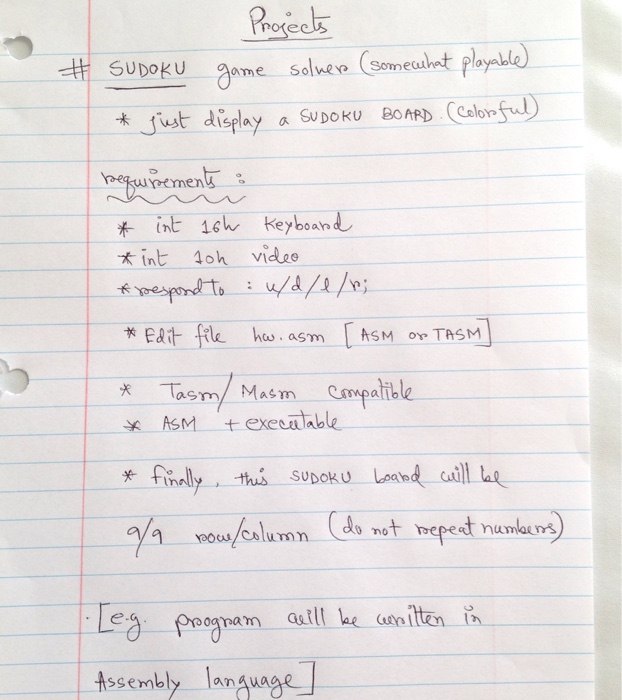 Projects
# SUDOKU game solver (somewhat playable)
* just display a SUDOKU BOARD. (Colorful)
requirements :
* int 16h keyboard
* int 10h video
* respond to : u/d/l/r;
* Edit file hw.asm [ASM or TASM]
* Tasm/Masm compatible
* ASM + executable
* finally, this SUDOKU board will be
9/9 row/column (do not repeat numbers)
. [e.g. program will be written in
Assembly language]